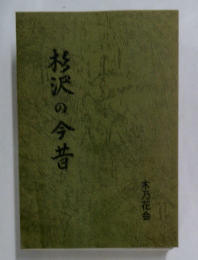 杉沢の今昔
木乃花会